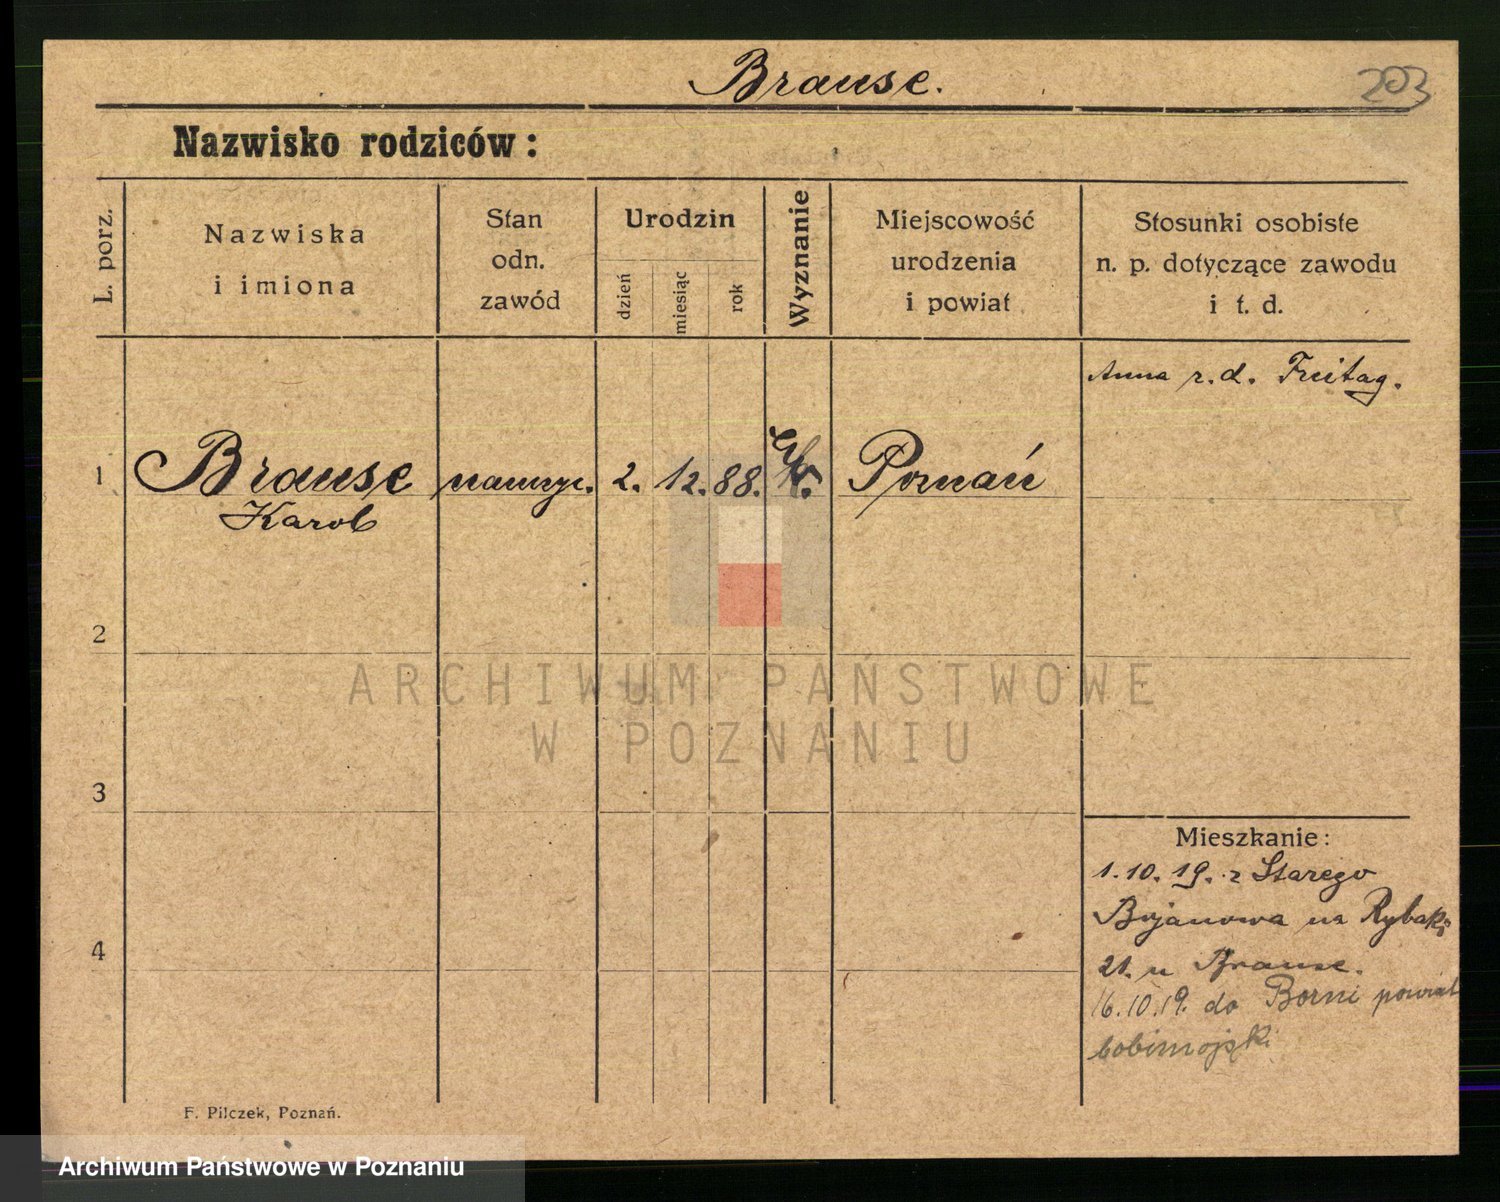 Brause.
203
Nazwisko rodziców:
L. porz.
Nazwiska
i imiona
Stan
odn.
zawód
Urodzin
dzień
miesiąc
rok
Wyznanie
Miejscowość
urodzenia
i powiat
Stosunki osobiste
n. p. dotyczące zawodu
i t. d.
Anna r. d. Freitag.
1 Brause nauczyc. 2. 12. 88. Poznań
Karol
2
ARCHIWUM PAŃSTWOWE
W POZNANIU
3
Mieszkanie:
1.10.19. z Starego
Bojanowa na Rybaki
4
21. u Brause.
16.10.19. do Borni powiat
bobimojski
F. Pilczek, Poznań.
Archiwum Państwowe w Poznaniu